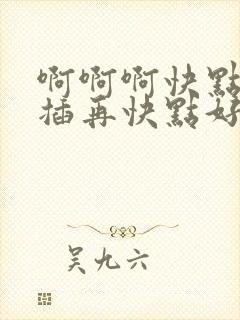 啊啊啊快點
插再快點好
吴九六